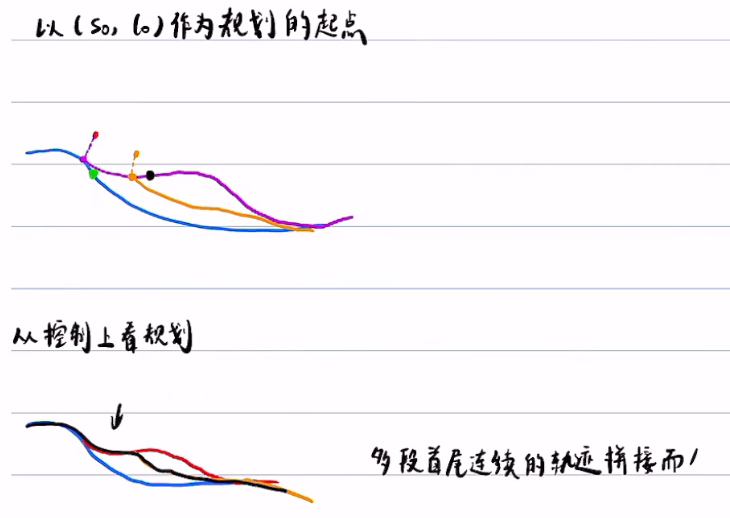 以(s₀, l₀)作为规划的起点
从控制上看规划
多段首尾连续的轨迹拼接而